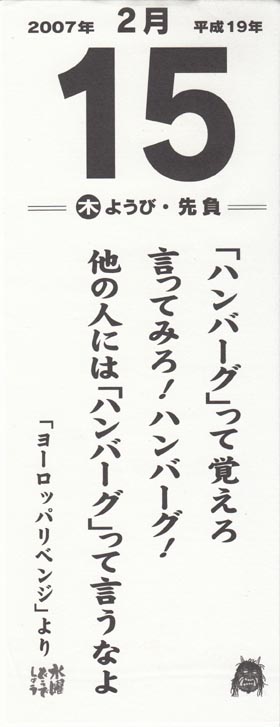 2007年 2月 平成19年
15
木 ようび・先負
「ハンバーグ」って覚えろ
言ってみろ！ハンバーグ！
他の人には「ハンバーグ」って言うなよ
「ヨーロッパリベンジ」より
水曜
どうで
しょう